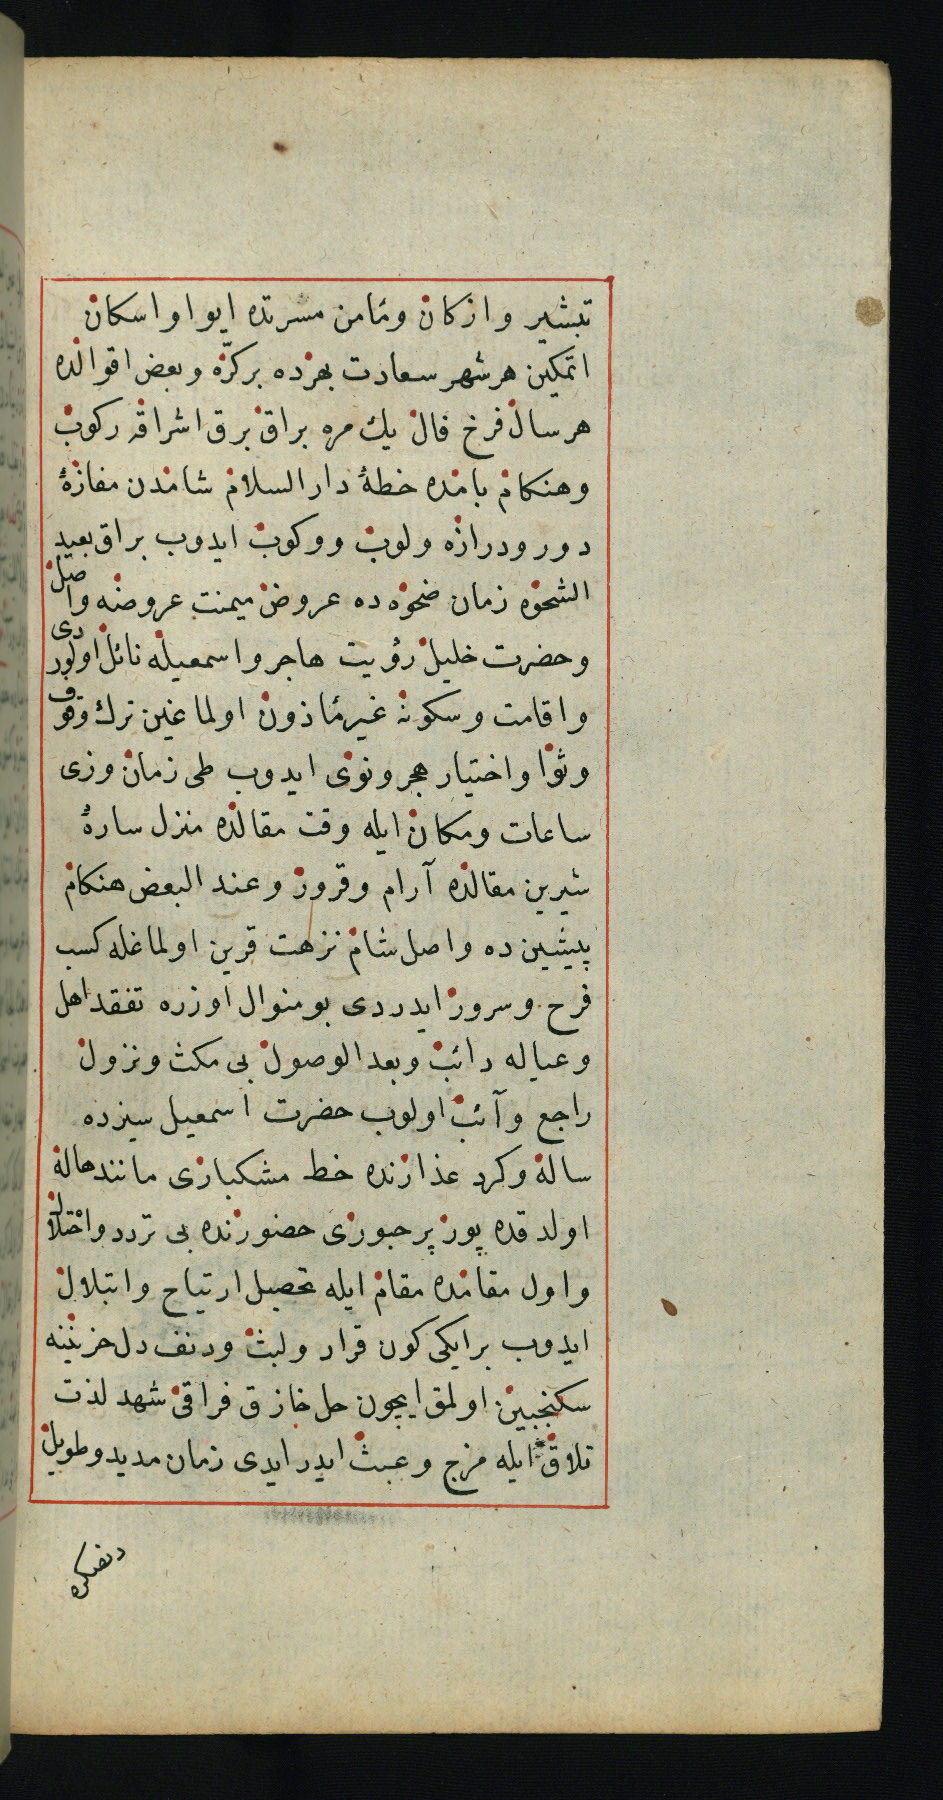 تبشیر وازكان ومٔامن مسرتده ایوا واسكان
اتمكین هر شهر سعادت بهرده بركرّه وبعض اقوالده
هر سال فرخ فال یك مره براق برق اشراقه ركوب
وهنكام بامده خطهٔ دار السلام شامدن مفازهٔ
دور ودرازه ولوب ووكوب ایدوب براق بعید
الشحوه زمان ضحوه ده عروض میمنت عروضه واصل
وحضرت خلیل رؤیت هاجر واسمعیله نائل اولوردی
واقامت وسكونه غیر مٔاذون اولماغین ترك وقوف
وثوا واختیار هجر ونوی ایدوب طی زمان وزی
ساعات ومكان ایله وقت مقالده منزل سارهٔ
شیرین مقالده آرام وقرور وعند البعض هنكام
پیشین ده واصل شام نزهت قرین اولماغله كسب
فرح وسرور ایدردی بو منوال اوزره تفقد اهل
وعیاله دائب وبعد الوصول بی مكث ونزول
راجع وآئب اولوب حضرت اسمعیل سیزده
ساله وكرد عذارنده خط مشكباری مانند هاله
اولدقده پور پر حبوری حضورنده بی تردد واختلال
واول مقامده مقام ایله تحصیل ارتیاح وابتلال
ایدوب بر ایكی كون قرار ولبث ودنف دل حزینینه
سكنجبین اولمق ایچون خل خازق فراقی شهد لذت
تلاق ایله مزج وعبث ایدر ایدی زمان مدید وطویل